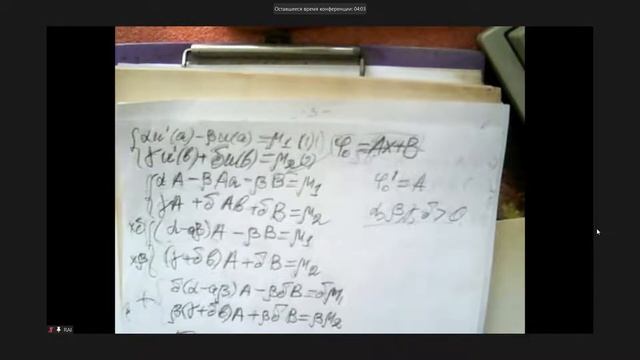 Оставшееся время конференции: 04:03
- 3 -
{ αu'(a) - βu(a) = μ₁ (1)
{ γu'(b) + δu(b) = μ₂ (2)
φ₀ = Ax + B
{ αA - βAa - βB = μ₁
φ₀' = A
{ γA + δAb + δB = μ₂
α, β, γ, δ > 0
×δ { (α - aβ)A - βB = μ₁
×β { (γ + δb)A + δB = μ₂
+ { δ(α - aβ)A - βδB = δμ₁
β(γ + δb)A + βδB = βμ₂
RAI